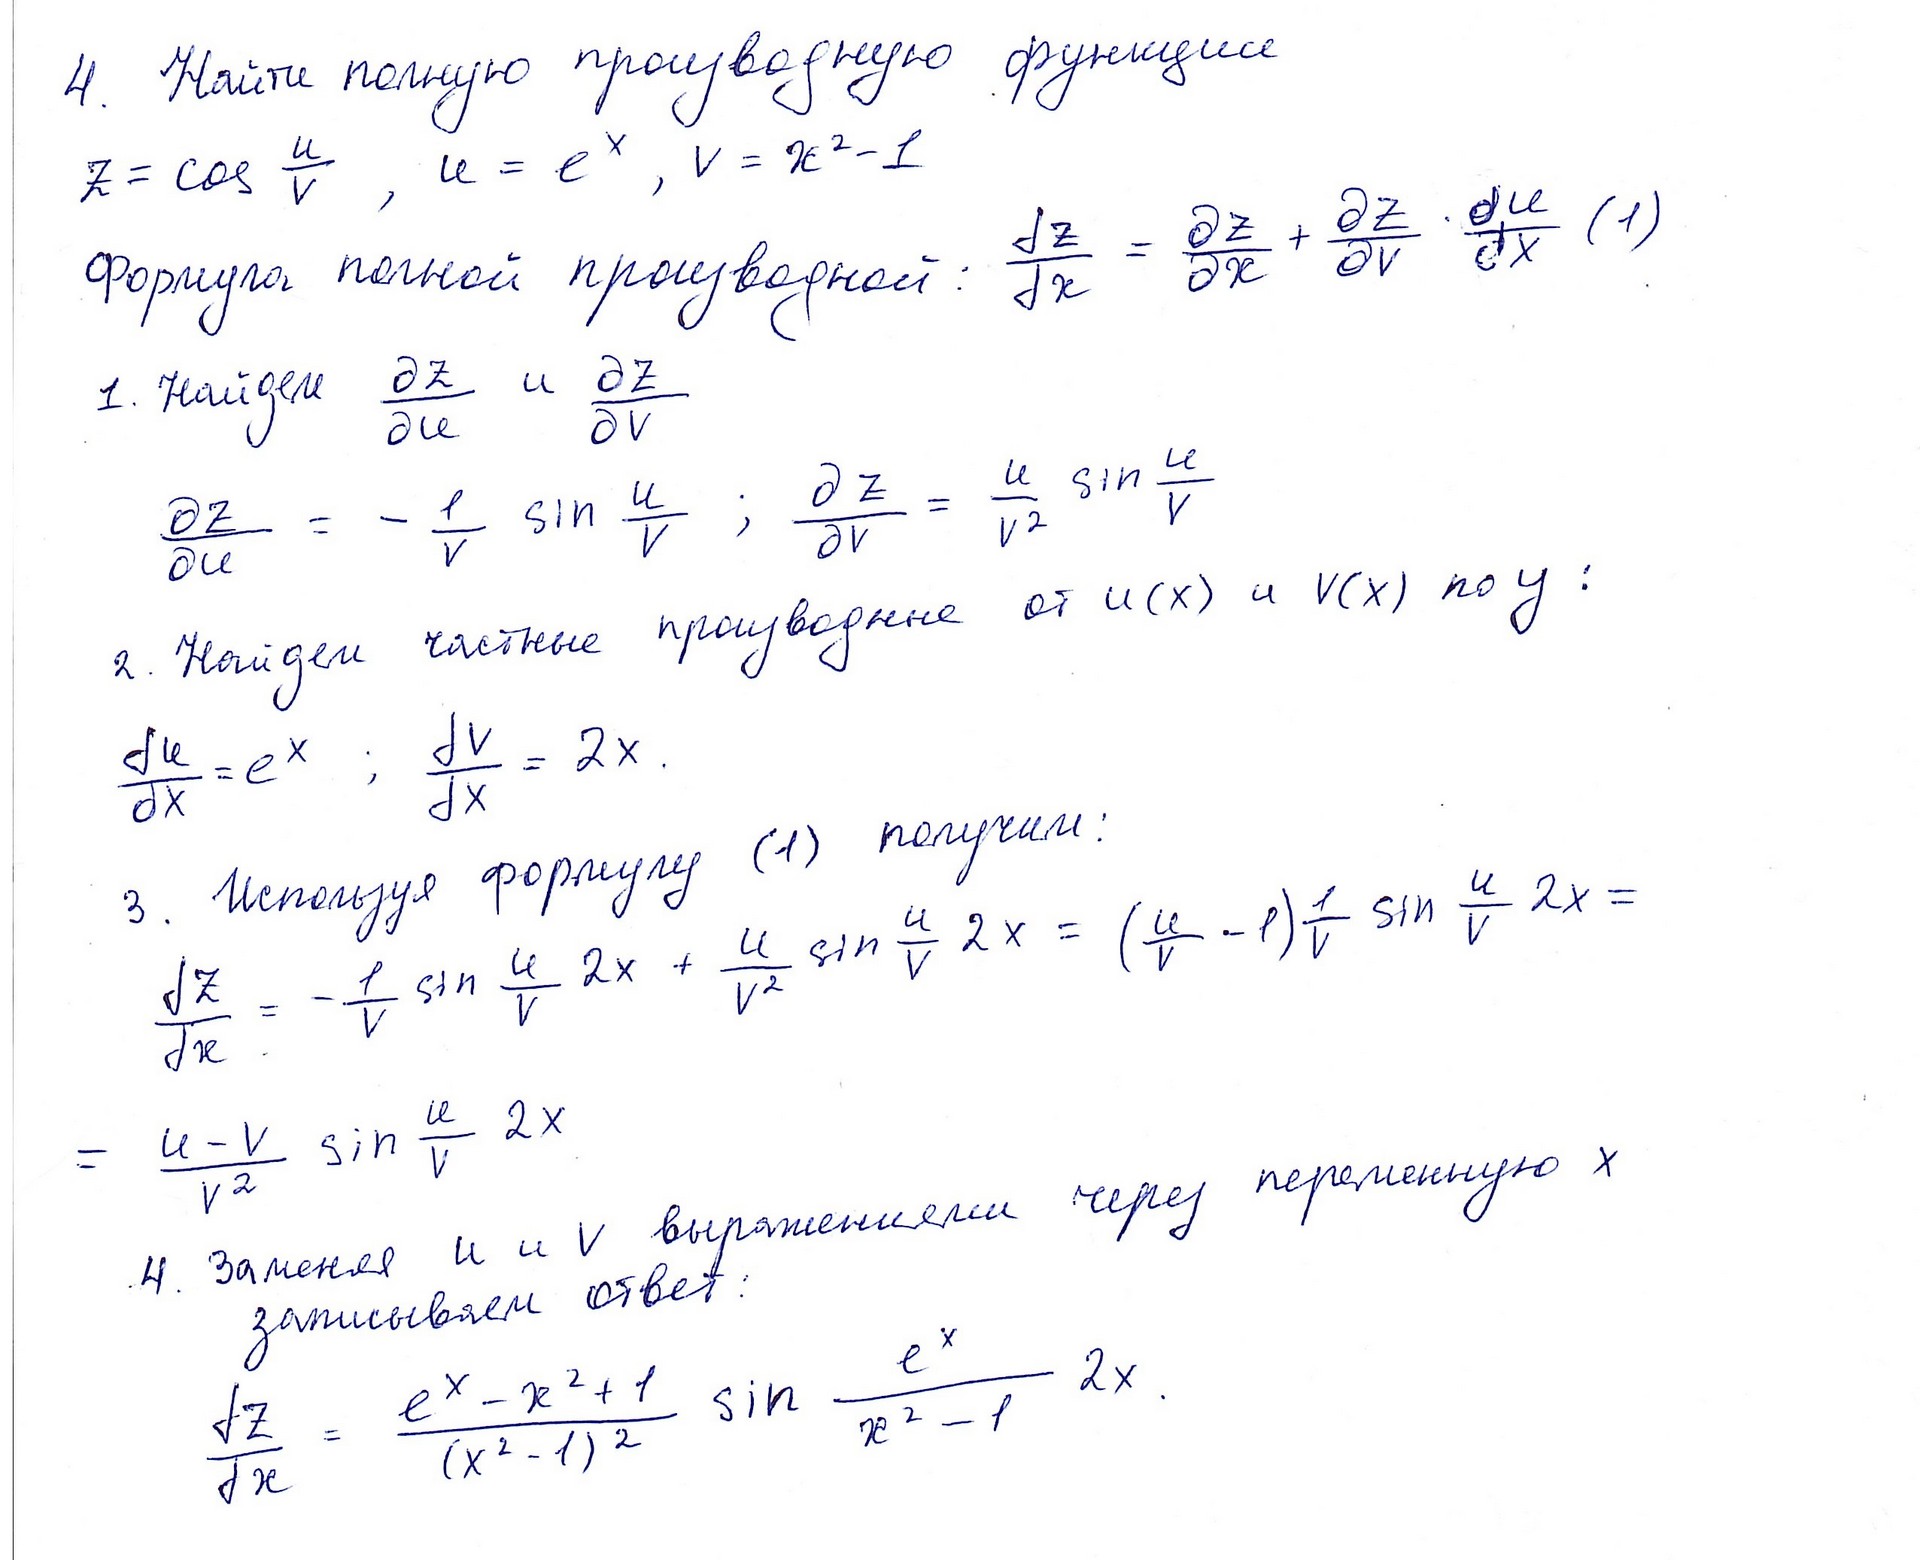 4. Найти полную производную функции
z = cos u/v , u = e^x , v = x² - 1
Формула полной производной: dz/dx = ∂z/∂x + ∂z/∂v · du/dx (1)
1. Найдем ∂z/∂u и ∂z/∂v
∂z/∂u = - 1/v sin u/v ; ∂z/∂v = u/v² sin u/v
2. Найдем частные производные от u(x) и v(x) по y :
du/dx = e^x ; dv/dx = 2x .
3. Используя формулу (1) получим:
dz/dx = - 1/v sin u/v 2x + u/v² sin u/v 2x = (u/v - 1) 1/v sin u/v 2x =
= u-v/v² sin u/v 2x
4. Заменяя u и v выражениями через переменную x
записываем ответ:
dz/dx = e^x - x² + 1/(x² - 1)² sin e^x/x² - 1 2x .